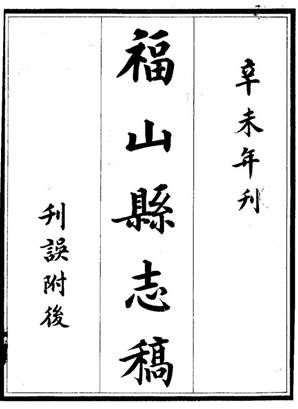 辛未年刋
福山縣志稿
刋誤附後